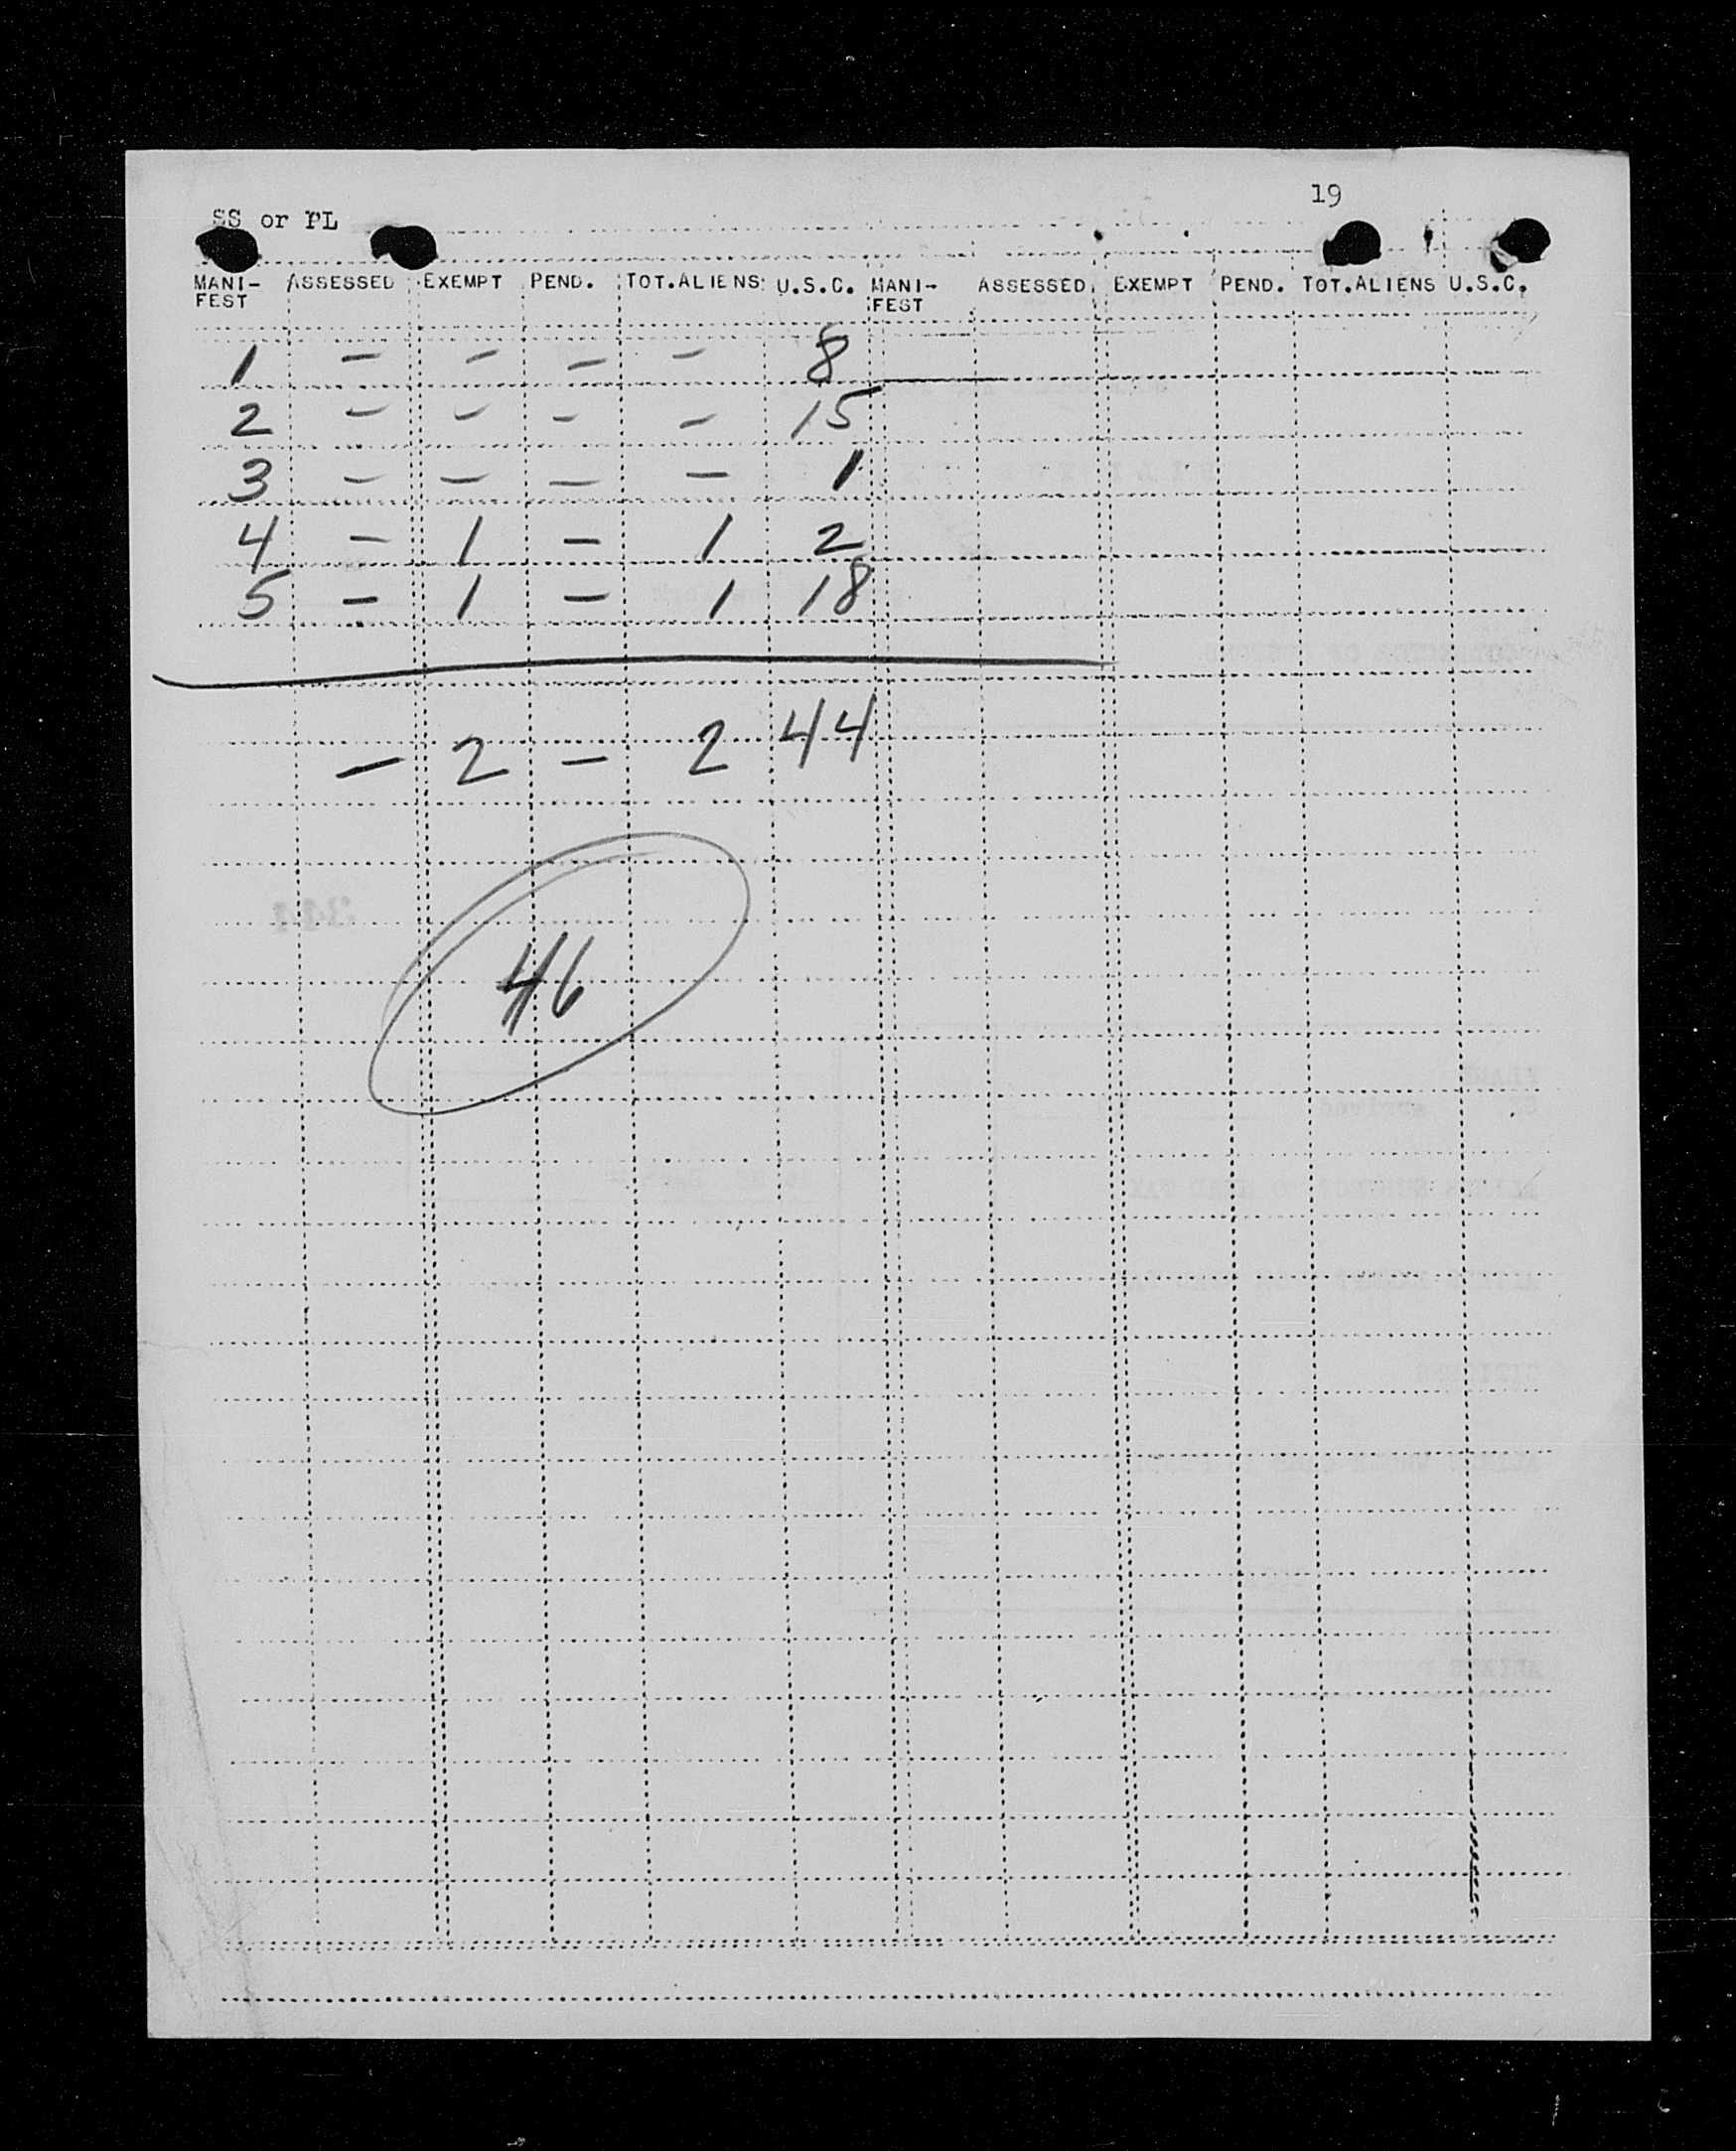 19
SS or PL
MANI- ASSESSED EXEMPT PEND. TOT.ALIENS U.S.C. MANI- ASSESSED EXEMPT PEND. TOT.ALIENS U.S.C.
FEST FEST
1 - - - - 8
2 - - - - 15
3 - - - - 1
4 - 1 - 1 2
5 - 1 - 1 18
- 2 - 2 44
46